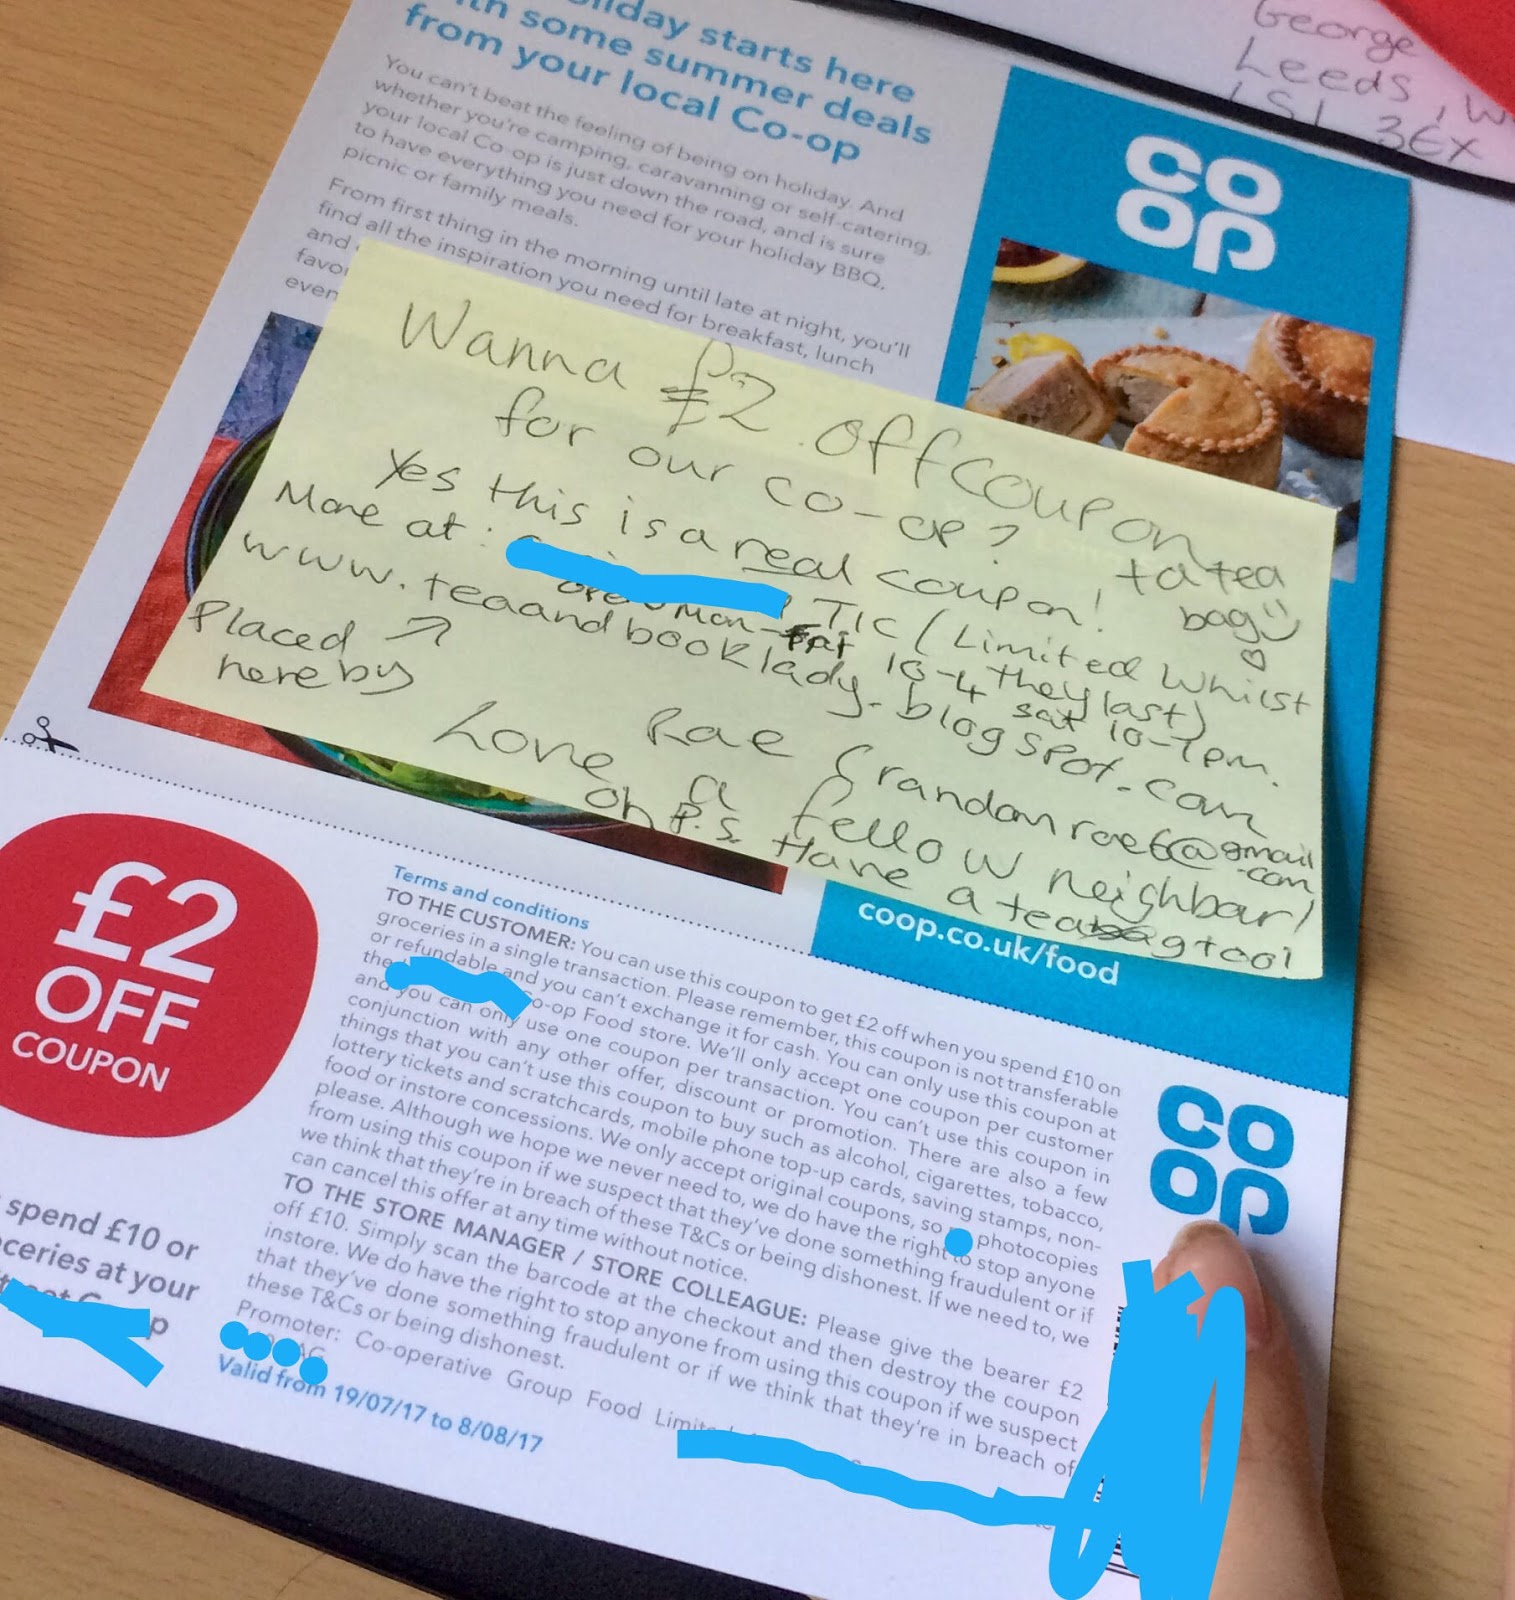 George
Leeds, W
LS1 3EX
oliday starts here
ith some summer deals
from your local Co-op
You can't beat the feeling of being on holiday. And
whether you're camping, caravanning or self-catering,
your local Co-op is just down the road, and is sure
to have everything you need for your holiday BBQ,
picnic or family meals.
From first thing in the morning until late at night, you'll
find all the inspiration you need for breakfast, lunch
and
favou
even
CO
OP
Wanna £2 off coupon
for our co-op?
Yes this is a real coupon! + a tea
bag
More at: TIC (Limited Whilst
they last)
open Mon- 10-4 sat 10-1pm.
www.teaandbooklady.blogspot.com
Placed ↗
here by
Rae (randomrae6@gmail
.com
Love a fellow neighbour!
oh P.S. Have a teabag too!
coop.co.uk/food
£2
OFF
COUPON
Terms and conditions
TO THE CUSTOMER: You can use this coupon to get £2 off when you spend £10 on
groceries in a single transaction. Please remember, this coupon is not transferable
or refundable and you can't exchange it for cash. You can only use this coupon at
the Co-op Food store. We'll only accept one coupon per customer
and you can only use one coupon per transaction. You can't use this coupon in
conjunction with any other offer, discount or promotion. There are also a few
things that you can't use this coupon to buy such as alcohol, cigarettes, tobacco,
lottery tickets and scratchcards, mobile phone top-up cards, saving stamps, non-
food or instore concessions. We only accept original coupons, so photocopies
please. Although we hope we never need to, we do have the right to stop anyone
from using this coupon if we suspect that they've done something fraudulent or if
we think that they're in breach of these T&Cs or being dishonest. If we need to, we
can cancel this offer at any time without notice.
TO THE STORE MANAGER / STORE COLLEAGUE: Please give the bearer £2
off £10. Simply scan the barcode at the checkout and then destroy the coupon
instore. We do have the right to stop anyone from using this coupon if we suspect
that they've done something fraudulent or if we think that they're in breach of
these T&Cs or being dishonest.
Promoter: Co-operative Group Food Limited
Valid from 19/07/17 to 8/08/17
CO
OP
spend £10 or
ceries at your